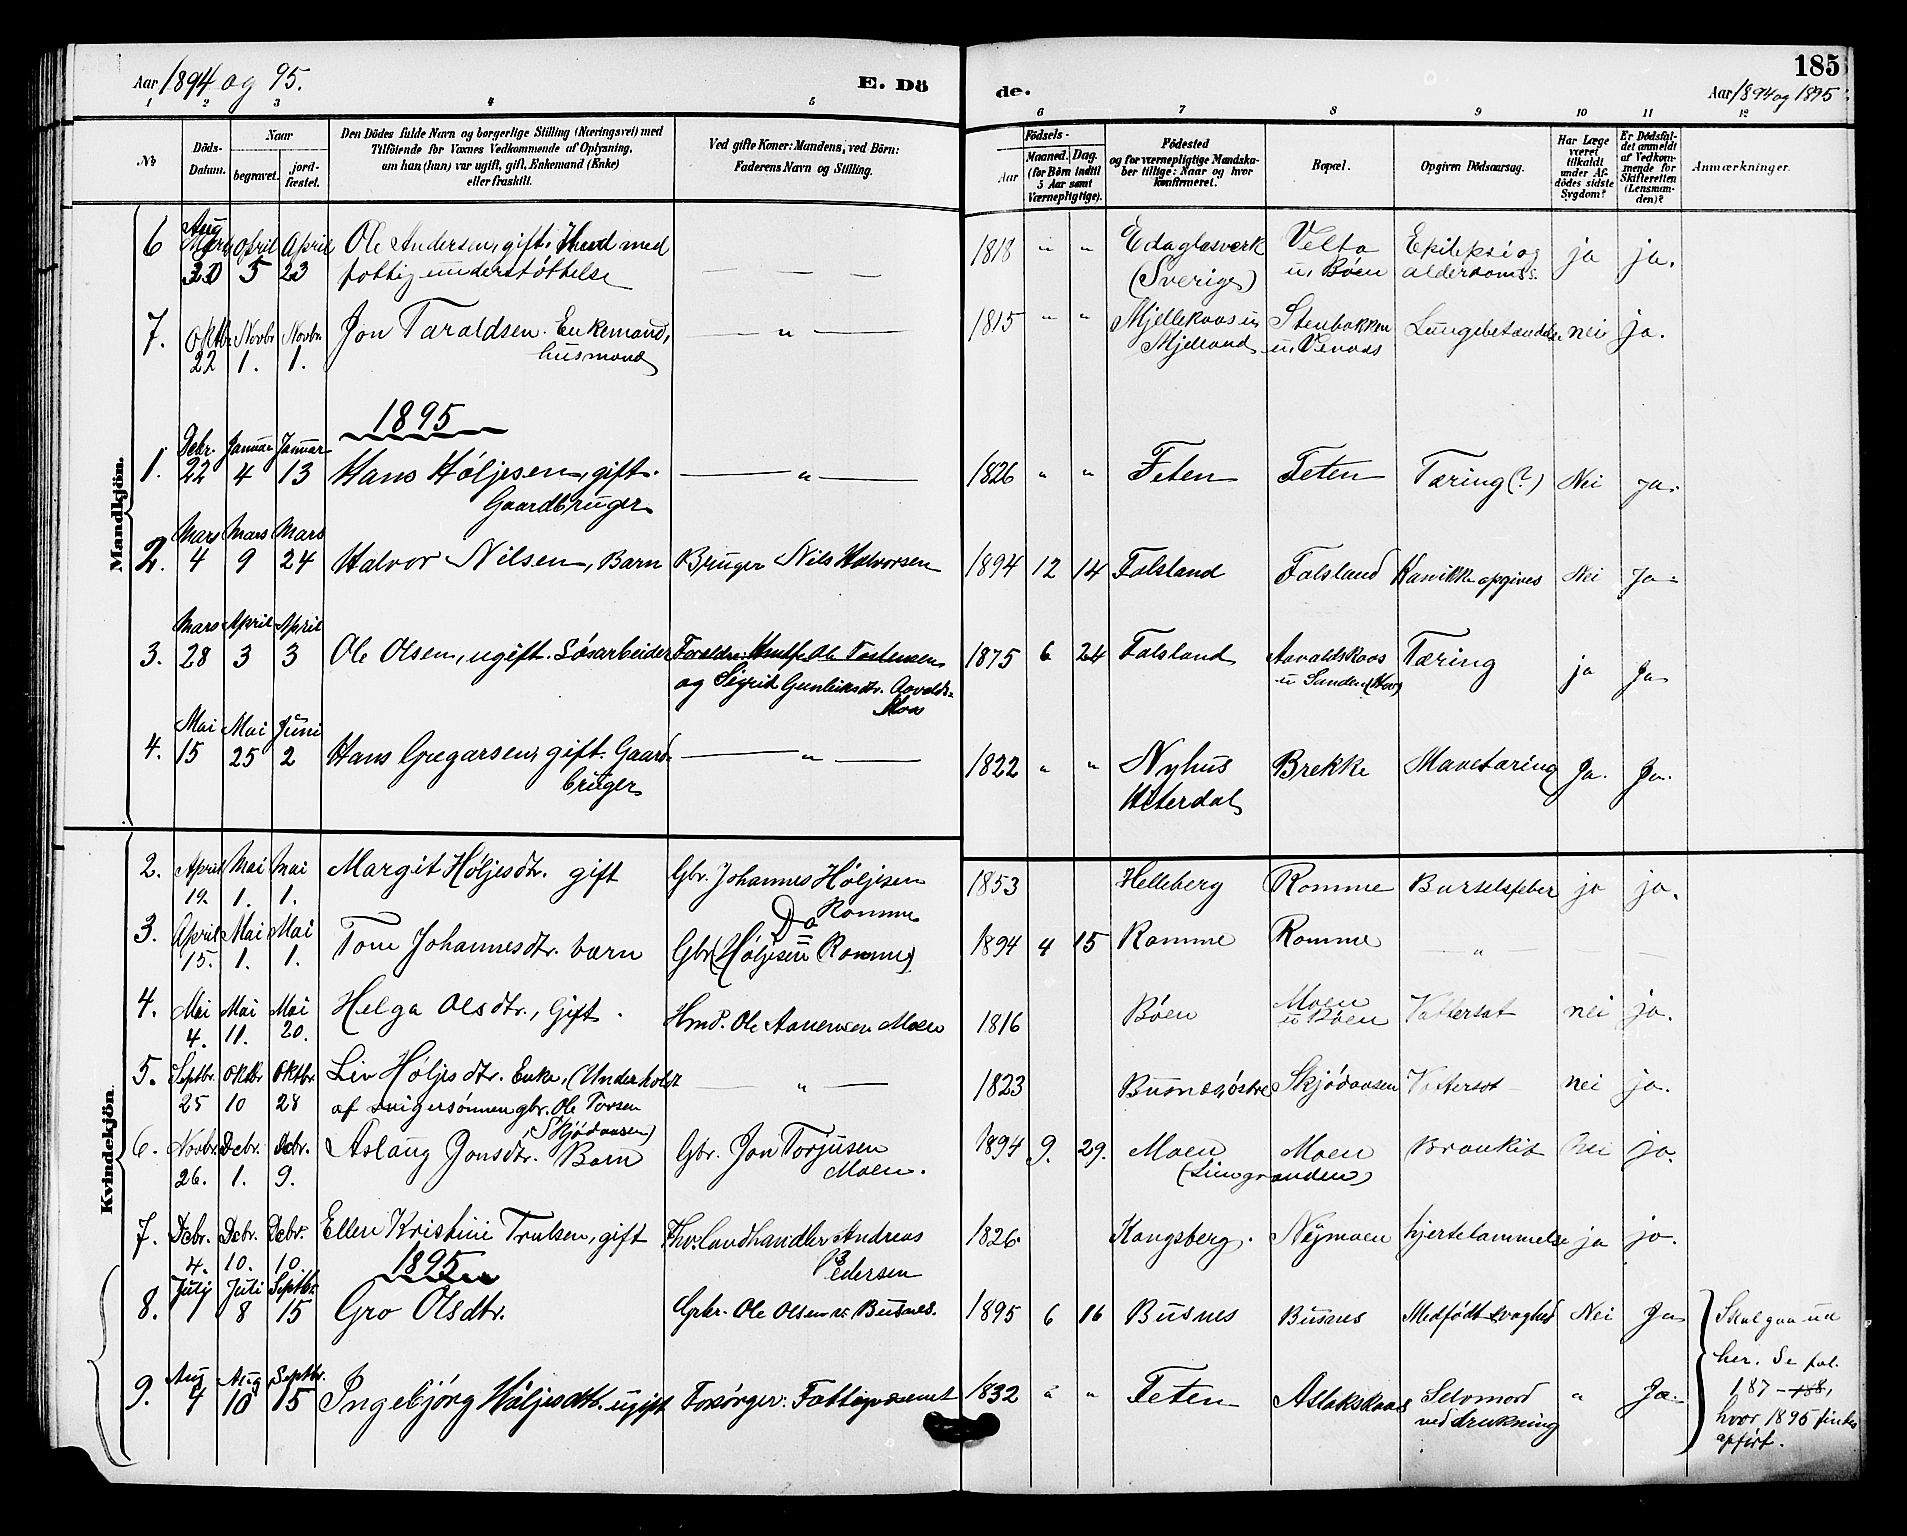 Aar 1894 og 95. E. Dö
de. Aar 1894 og 1895.
185
1 2 3 4 5 6 7 8 9 10 11 12
No
Döds-Datum.
Naar
begravet.
jord-fæstet.
Den Dödes fulde Navn og borgerlige Stilling (Næringsvei) med
Tilföiende for Voxnes Vedkommende af Oplysning,
om han (hun) var ugift, gift, Enkemand (Enke)
eller fraskilt.
Ved gifte Koner: Mandens, ved Börn:
Faderens Navn og Stilling.
Födsels-
Aar
Maaned. Dag.
(for Börn indtil
5 Aar samt
Værnepligtige).
Födested
og for værnepligtige Mandska-
ber tillige: Naar og hvor
konfirmeret.
Bopæl.
Opgiven Dödsaarsag.
Har Læge
været
tilkaldt
under Af-
dödes sidste
Sygdom?
Er Dödsfal-
det anmeldt
af Vedkom-
mende for
Skifteretten
(Lensman-
den)?
Anmærkninger.
Mandkjön.
6 Aug 30 April 5 April 23 Ole Andersen, gift. Husmd med — — — 1818 " " Edaglasverk Velta Epilepsi og ja ja.
fattigunderstøttelse (Sverige) u. Bøen alderdoms.
7. Oktbr 22 Novbr 1. Novbr 1. Jon Taraldsen. Enkemand, — " — 1815 " " Mjellekaas u Stenbakken Lungebetændelse nei ja.
husmand Mjelland u. Venaas
1895
1. Debr. 22 Januar 4 Januar 13 Hans Høljesen, gift. — " — 1826 " " Feten Feten Tæring (?) Nei ja.
Gaardbruger
2. Mars 4 Mars 9 Mars 24 Halvor Nilsen, Barn Bruger Nils Halvorsen 1894 12 14 Falsland Falsland Kan ikke opgives Nei Ja
3. Mars 28 April 3 April 3 Ole Olsen, ugift. Løsarbeider Forældre: Ole Torstensen 1875 6 24 Falsland Aavaldskaas Tæring ja Ja
og Sigrid Gunleiksdtr. Aavalds- u Sanden
kaas
4. Mai 15 Mai 25 Juni 2 Hans Gregarsen, gift. Gaard- — " — 1822 " " Nyhus Brekke Mavetæring Ja. Ja.
bruger Hiterdal
Kvindekjön.
2. April 12. Mai 1. Mai 1. Margit Høljesdtr. gift Gbr. Johannes Høljesen 1853 Helleberg Romme Barselsfeber ja ja.
Romme
3. April 15. Mai 1. Mai 1. Tone Johannesdtr. barn Gbr Do (Høljesen Romme) 1894 4 15 Romme Romme " —
4. Mai 4. Mai 11. Mai 20. Helga Olsdtr., Gift. Hmd. Ole Aanensen Moen 1816 Bøen Moen u Bøen Vattersot nei ja.
5. Septbr. 25 Oktbr 10 Oktbr. 28 Liv Høljesdtr. Enke, (Underholdt — " — 1823 Busnes, østre Skjødaasen Vattersot nei ja.
af svigersønnen gbr. Ole Torsen
Skjødaasen)
6. Novbr. 26. Debr. 1. Debr. 9. Aslaug Jonsdtr. Barn Gbr. Jon Torjusen 1894 9. 29. Moen Moen Bronkit Nei ja.
Moen.
7. Debr. 4. Debr. 10. Debr. 10. Ellen Kristine Trulsen, gift Fhv. landhandler Andreas 1826. Kongsberg. Nymoen hjertelammelse ja ja.
Pedersen
1895
8. Juli 1 Juli 8 Septbr. 15 Gro Olsdtr. Grbr. Ole Olsen n. Busnes. 1895 6 16 Busnes Busnes Medfødt svaghed Nei Ja
9. Aug 4 Aug 10 Septbr. 15 Ingebjörg Høljesdtr. ugift Forsørger: Fattigvæsenet 1832 " " Feten Aslakskaas Selvmord " Ja.
ved drukning
Skal gaa ud
her. Se fol.
187-188,
hvor 1895 findes
opført.